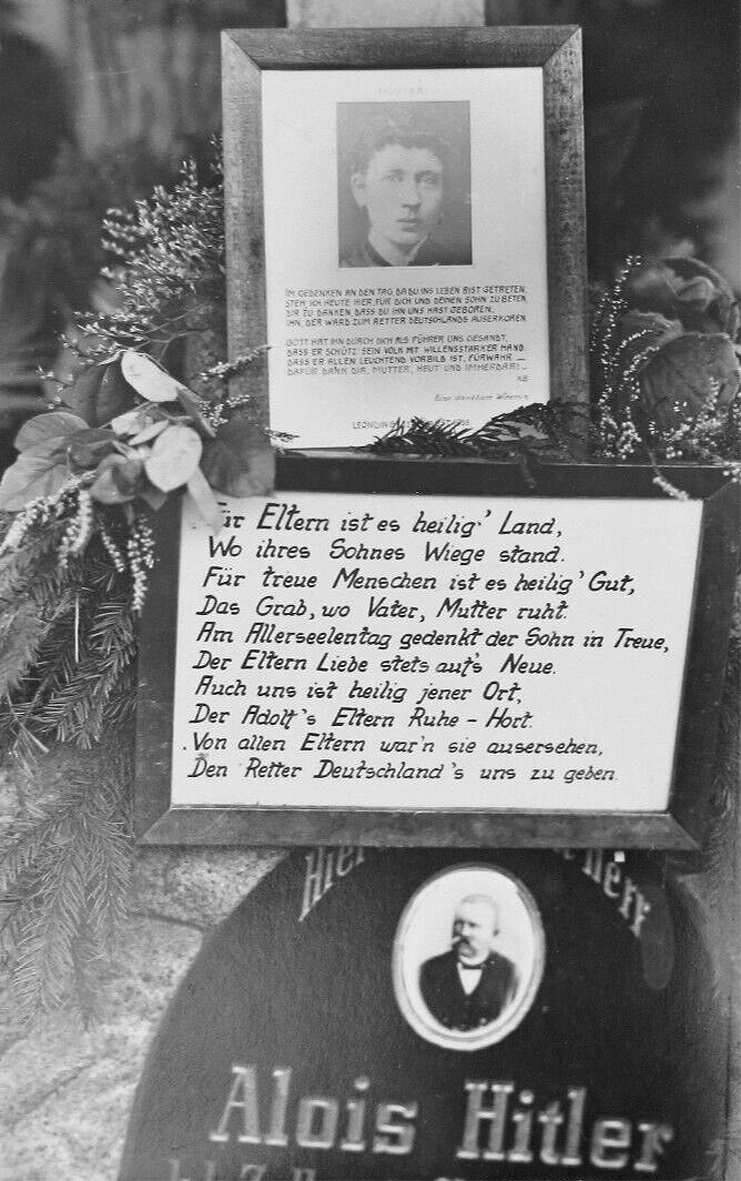 IM GEDENKEN AN DEN TAG, DA DU INS LEBEN BIST GETRETEN,
STEH ICH HEUTE HIER, FÜR DICH UND DEINEN SOHN ZU BETEN,
DIR ZU DANKEN, DASS DU IHN UNS HAST GEBOREN,
IHN, DER WARD ZUM RETTER DEUTSCHLANDS AUSERKOREN.
GOTT HAT IHN DURCH DICH ALS FÜHRER UNS GESANDT,
DASS ER SCHÜTZ' SEIN VOLK MIT WILLENSSTARKER HAND.
DASS ER ALLEN LEUCHTEND VORBILD IST, FÜRWAHR —
DAFÜR DANK DIR, MUTTER, HEUT UND IMMERDAR! –
Eine dankbare Wienerin
Für Eltern ist es heilig' Land,
Wo ihres Sohnes Wiege stand.
Für treue Menschen ist es heilig' Gut,
Das Grab, wo Vater, Mutter ruht.
Am Allerseelentag gedenkt der Sohn in Treue,
Der Eltern Liebe stets auf's Neue.
Auch uns ist heilig jener Ort,
Der Adolf's Eltern Ruhe - Hort.
Von allen Eltern war'n sie ausersehen,
Den Retter Deutschland's uns zu geben.
Hier Herr
Alois Hitler